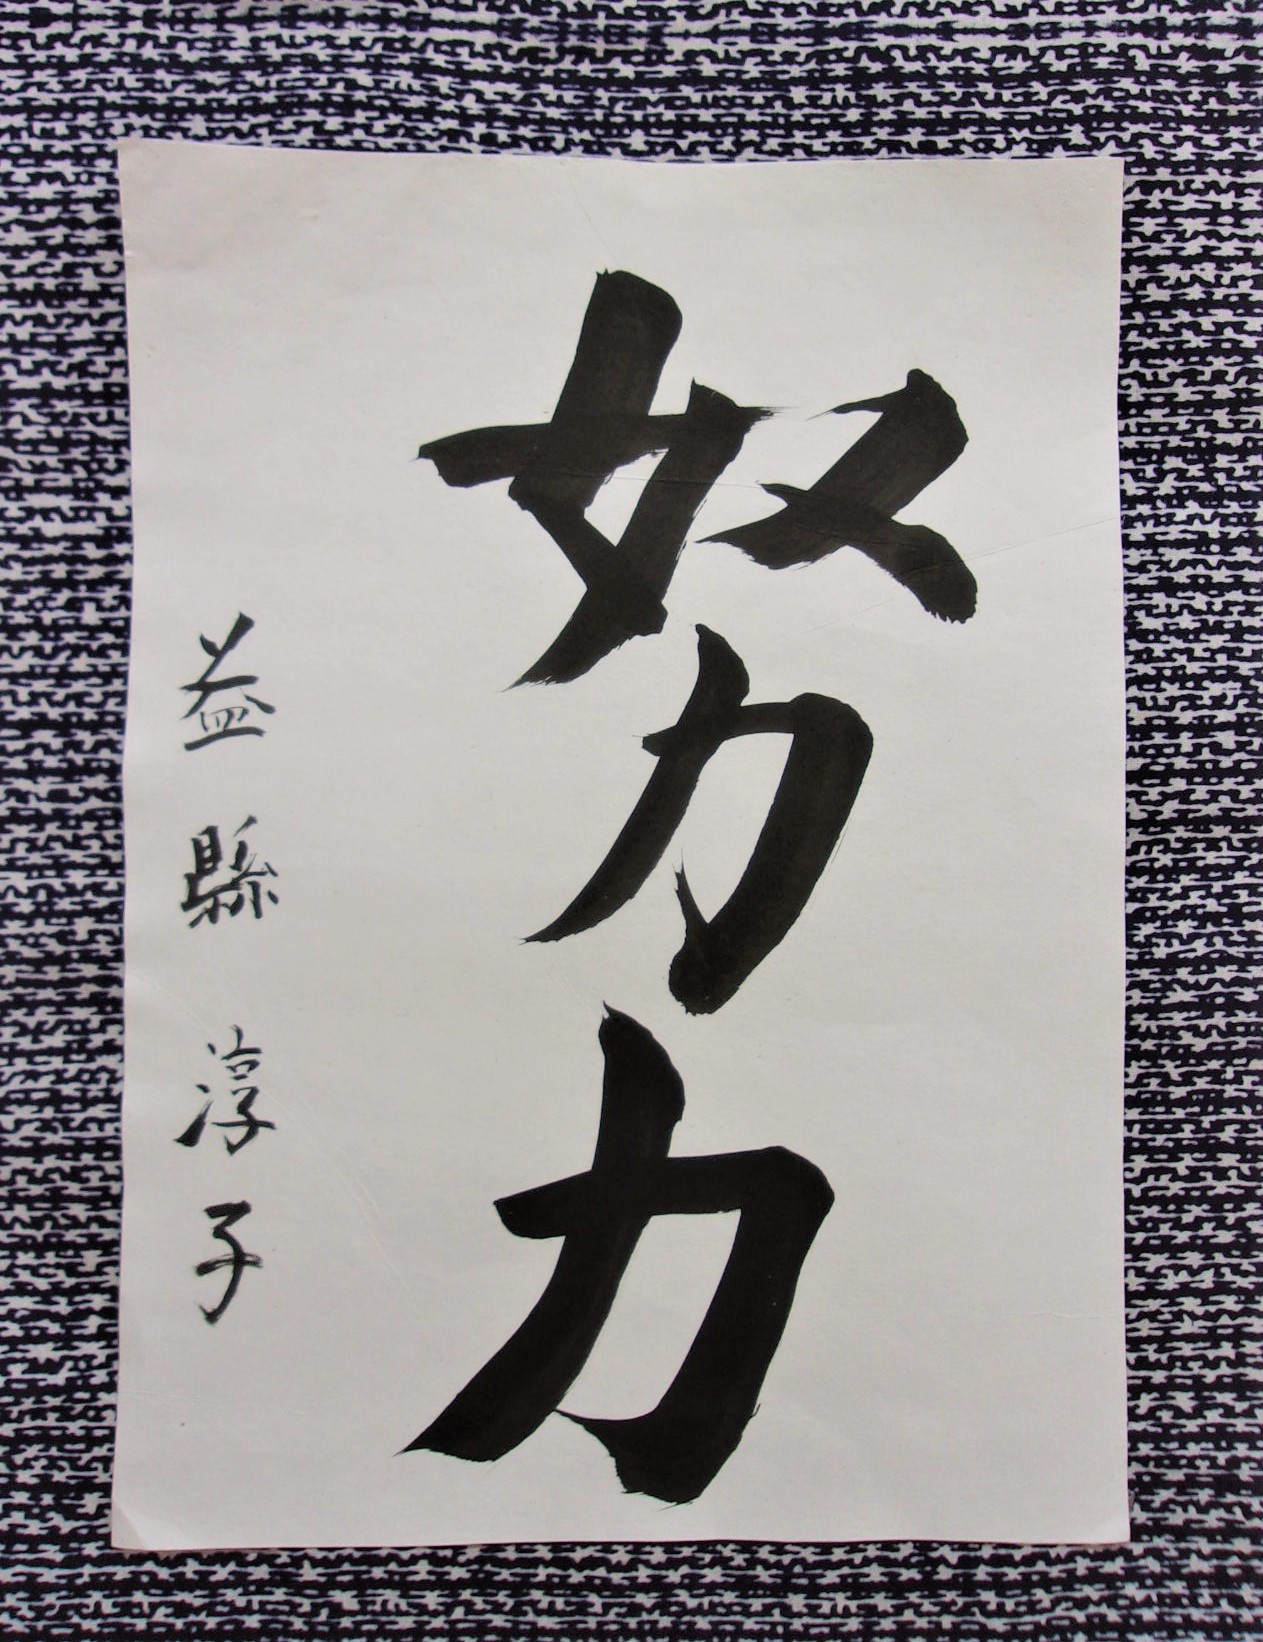 努力
益縣淳子